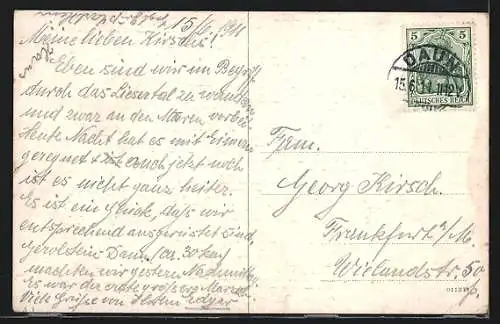 15/6. 1911
Meine lieben Kirschs!
Eben sind wir im Begriff
durch das Liesertal zu wandern
und zwar an den Maren vorbei.
Heute Nacht hat es mit Eimern
geregnet & auch jetzt noch
ist es nicht ganz heiter.
Es ist ein Glück, daß wir
entsprechend ausgerüstet sind,
Gerolstein Daun (ca. 30 km)
machten wir gestern Nachmittag.
Es war der erste große Marsch.
Viele Grüße von
5 5
DAUN
15.6.11. 11-12
DEUTSCHES REICH
Fam.
Georg Kirsch
Frankfurt a/M.
Wielandstr. 50